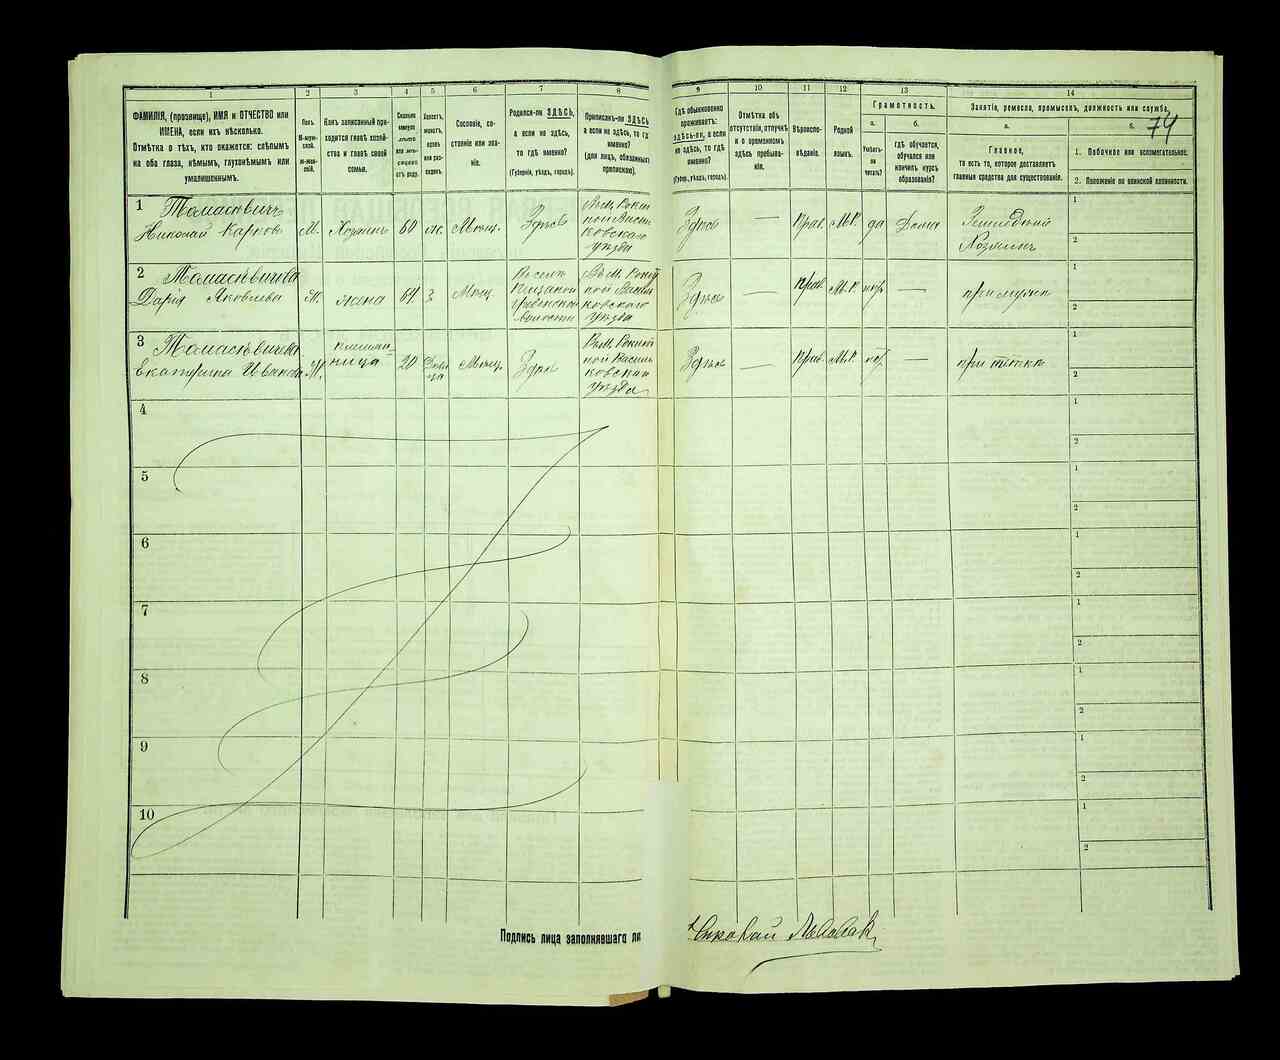 1
ФАМИЛІЯ, (прозвище), ИМЯ и ОТЧЕСТВО или
ИМЕНА, если ихъ нѣсколько.
Отмѣтка о тѣхъ, кто окажется: слѣпымъ
на оба глаза, нѣмымъ, глухонѣмымъ или
умалишеннымъ.
2
Полъ.
М-муж-
ской.
Ж-жен-
скій.
3
Какъ записанный при-
ходится главѣ хозяй-
ства и главѣ своей
семьи.
4
Сколько
минуло
лѣтъ
или мѣся-
цевъ
отъ роду.
5
Холостъ,
женатъ,
вдовъ
или раз-
веденъ.
6
Сословіе, со-
стояніе или зва-
ніе.
7
Родился-ли ЗДѢСЬ,
а если не здѣсь,
то гдѣ именно?
(Губернія, уѣздъ, городъ).
8
Приписанъ-ли ЗДѢСЬ
а если не здѣсь, то гд
именно?
(для лицъ, обязанных
припискою).
9
Гдѣ обыкновенно
проживаетъ:
ЗДѢСЬ-ли, а если
не здѣсь, то гдѣ
именно?
(Губерн., уѣздъ, городъ).
10
Отмѣтка объ
отсутствіи, отлучкѣ
и о временномъ
здѣсь пребыва-
ніи.
11
Вѣроиспо-
вѣданіе.
12
Родной
языкъ.
13
Грамотность.
а.
Умѣетъ-
ли
читать?
б.
гдѣ обучается,
обучался или
кончилъ курсъ
образованія?
14
Занятіе, ремесло, промыселъ, должность или служба.
а.
Главное,
то есть то, которое доставляетъ
главныя средства для существованія.
б.
74
1. Побочное или вспомогательное.
2. Положеніе по воинской повинности.
1
Томасѣвичъ
Николай Карповъ
М.
Хозяинъ
60
Мѣщ.
Здѣсь
ковскаго
уѣзда
Здѣсь
—
Прав.
М.Р.
да
Дома
Хозяинъ
1
2
2
Томасѣвичева
Дарія Яковлева
Ж.
жена
64
Мѣщ.
волости
ковскаго
уѣзда
Здѣсь
—
Прав.
М.Р.
—
при мужѣ
1
2
3
Томасѣвичева
Екатерина Иванова
Ж.
ница
20
Мѣщ.
Здѣсь
уѣзда
Здѣсь
—
Прав.
М.Р.
—
при теткѣ
1
2
4
1
2
5
1
2
6
1
2
7
1
2
8
1
2
9
1
2
10
1
2
Подпись лица заполнявшаго ли
Николай